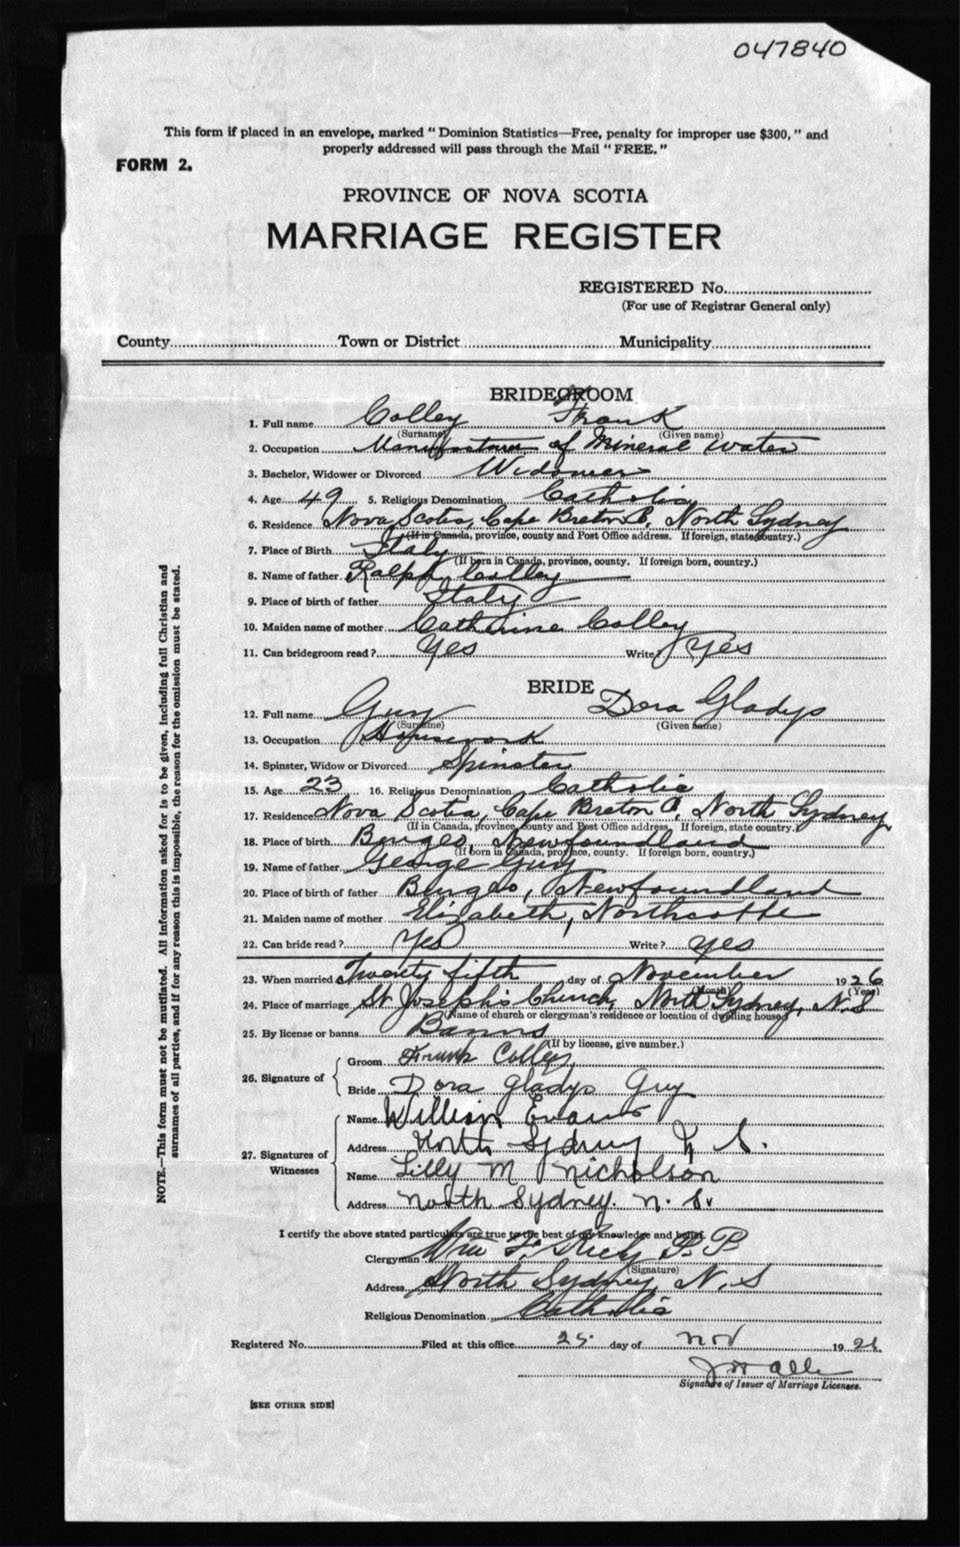 047840
This form if placed in an envelope, marked "Dominion Statistics—Free, penalty for improper use $300," and
properly addressed will pass through the Mail "FREE."
FORM 2.
PROVINCE OF NOVA SCOTIA
MARRIAGE REGISTER
REGISTERED No.
(For use of Registrar General only)
County Town or District Municipality
BRIDEGROOM
1. Full name Colley Frank
(Surname) (Given name)
2. Occupation Manufacturer of Mineral Water
3. Bachelor, Widower or Divorced Widower
4. Age 49 5. Religious Denomination Catholic
6. Residence Nova Scotia, Cape Breton C, North Sydney
(If in Canada, province, county and Post Office address. If foreign, state country.)
7. Place of Birth Italy
(If born in Canada, province, county. If foreign born, country.)
8. Name of father Ralph Colley
9. Place of birth of father Italy
10. Maiden name of mother Catherine Colley
11. Can bridegroom read? Yes Write? Yes
BRIDE
12. Full name Guy Dora Gladys
(Surname) (Given name)
13. Occupation Housework
14. Spinster, Widow or Divorced Spinster
15. Age 23 16. Religious Denomination Catholic
17. Residence Nova Scotia, Cape Breton C, North Sydney
(If in Canada, province, county and Post Office address. If foreign, state country.)
18. Place of birth Burgeo, Newfoundland
(If born in Canada, province, county. If foreign born, country.)
19. Name of father George Guy
20. Place of birth of father Burgeo, Newfoundland
21. Maiden name of mother Elizabeth, Northcotte
22. Can bride read? Yes Write? Yes
23. When married Twenty fifth day of November 1926
(Month) (Year)
24. Place of marriage St Joseph's Church, North Sydney, N.S
(Name of church or clergyman's residence or location of dwelling house)
25. By license or banns Banns
(If by license, give number.)
26. Signature of
Groom Frank Colley
Bride Dora Gladys Guy
27. Signatures of Witnesses
Name William Evans
Address North Sydney N S.
Name Lilly M Nicholson
Address North Sydney. N. S.
I certify the above stated particulars are true to the best of my knowledge and belief.
Clergyman Wm F. P.P
(Signature)
Address North Sydney N.S
Religious Denomination Catholic
Registered No. Filed at this office 25. day of Nov 1926
Signature of Issuer of Marriage Licenses.
[SEE OTHER SIDE]
NOTE.—This form must not be mutilated. All information asked for is to be given, including full Christian and
surnames of all parties, and if for any reason this is impossible, the reason for the omission must be stated.